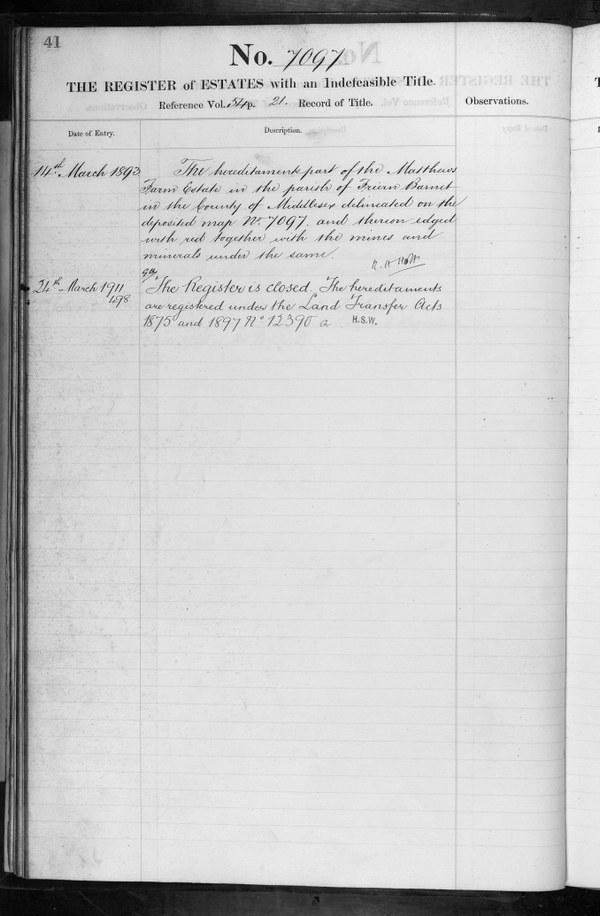 41
No. 7097
THE REGISTER of ESTATES with an Indefeasible Title.
Reference Vol. 54 p. 21. Record of Title.
Observations.
Date of Entry.
Description.
14th March 1893
The hereditaments part of the Matthews
Farm Estate in the parish of Friern Barnet
in the County of Middlesex delineated on the
deposited map No. 7097. and thereon edged
with red together with the mines and
minerals under the same.
24th March 1911
498
The Register is closed. The hereditaments
are registered under the Land Transfer Acts
1875 and 1897 No 12390 a
H.S.W.